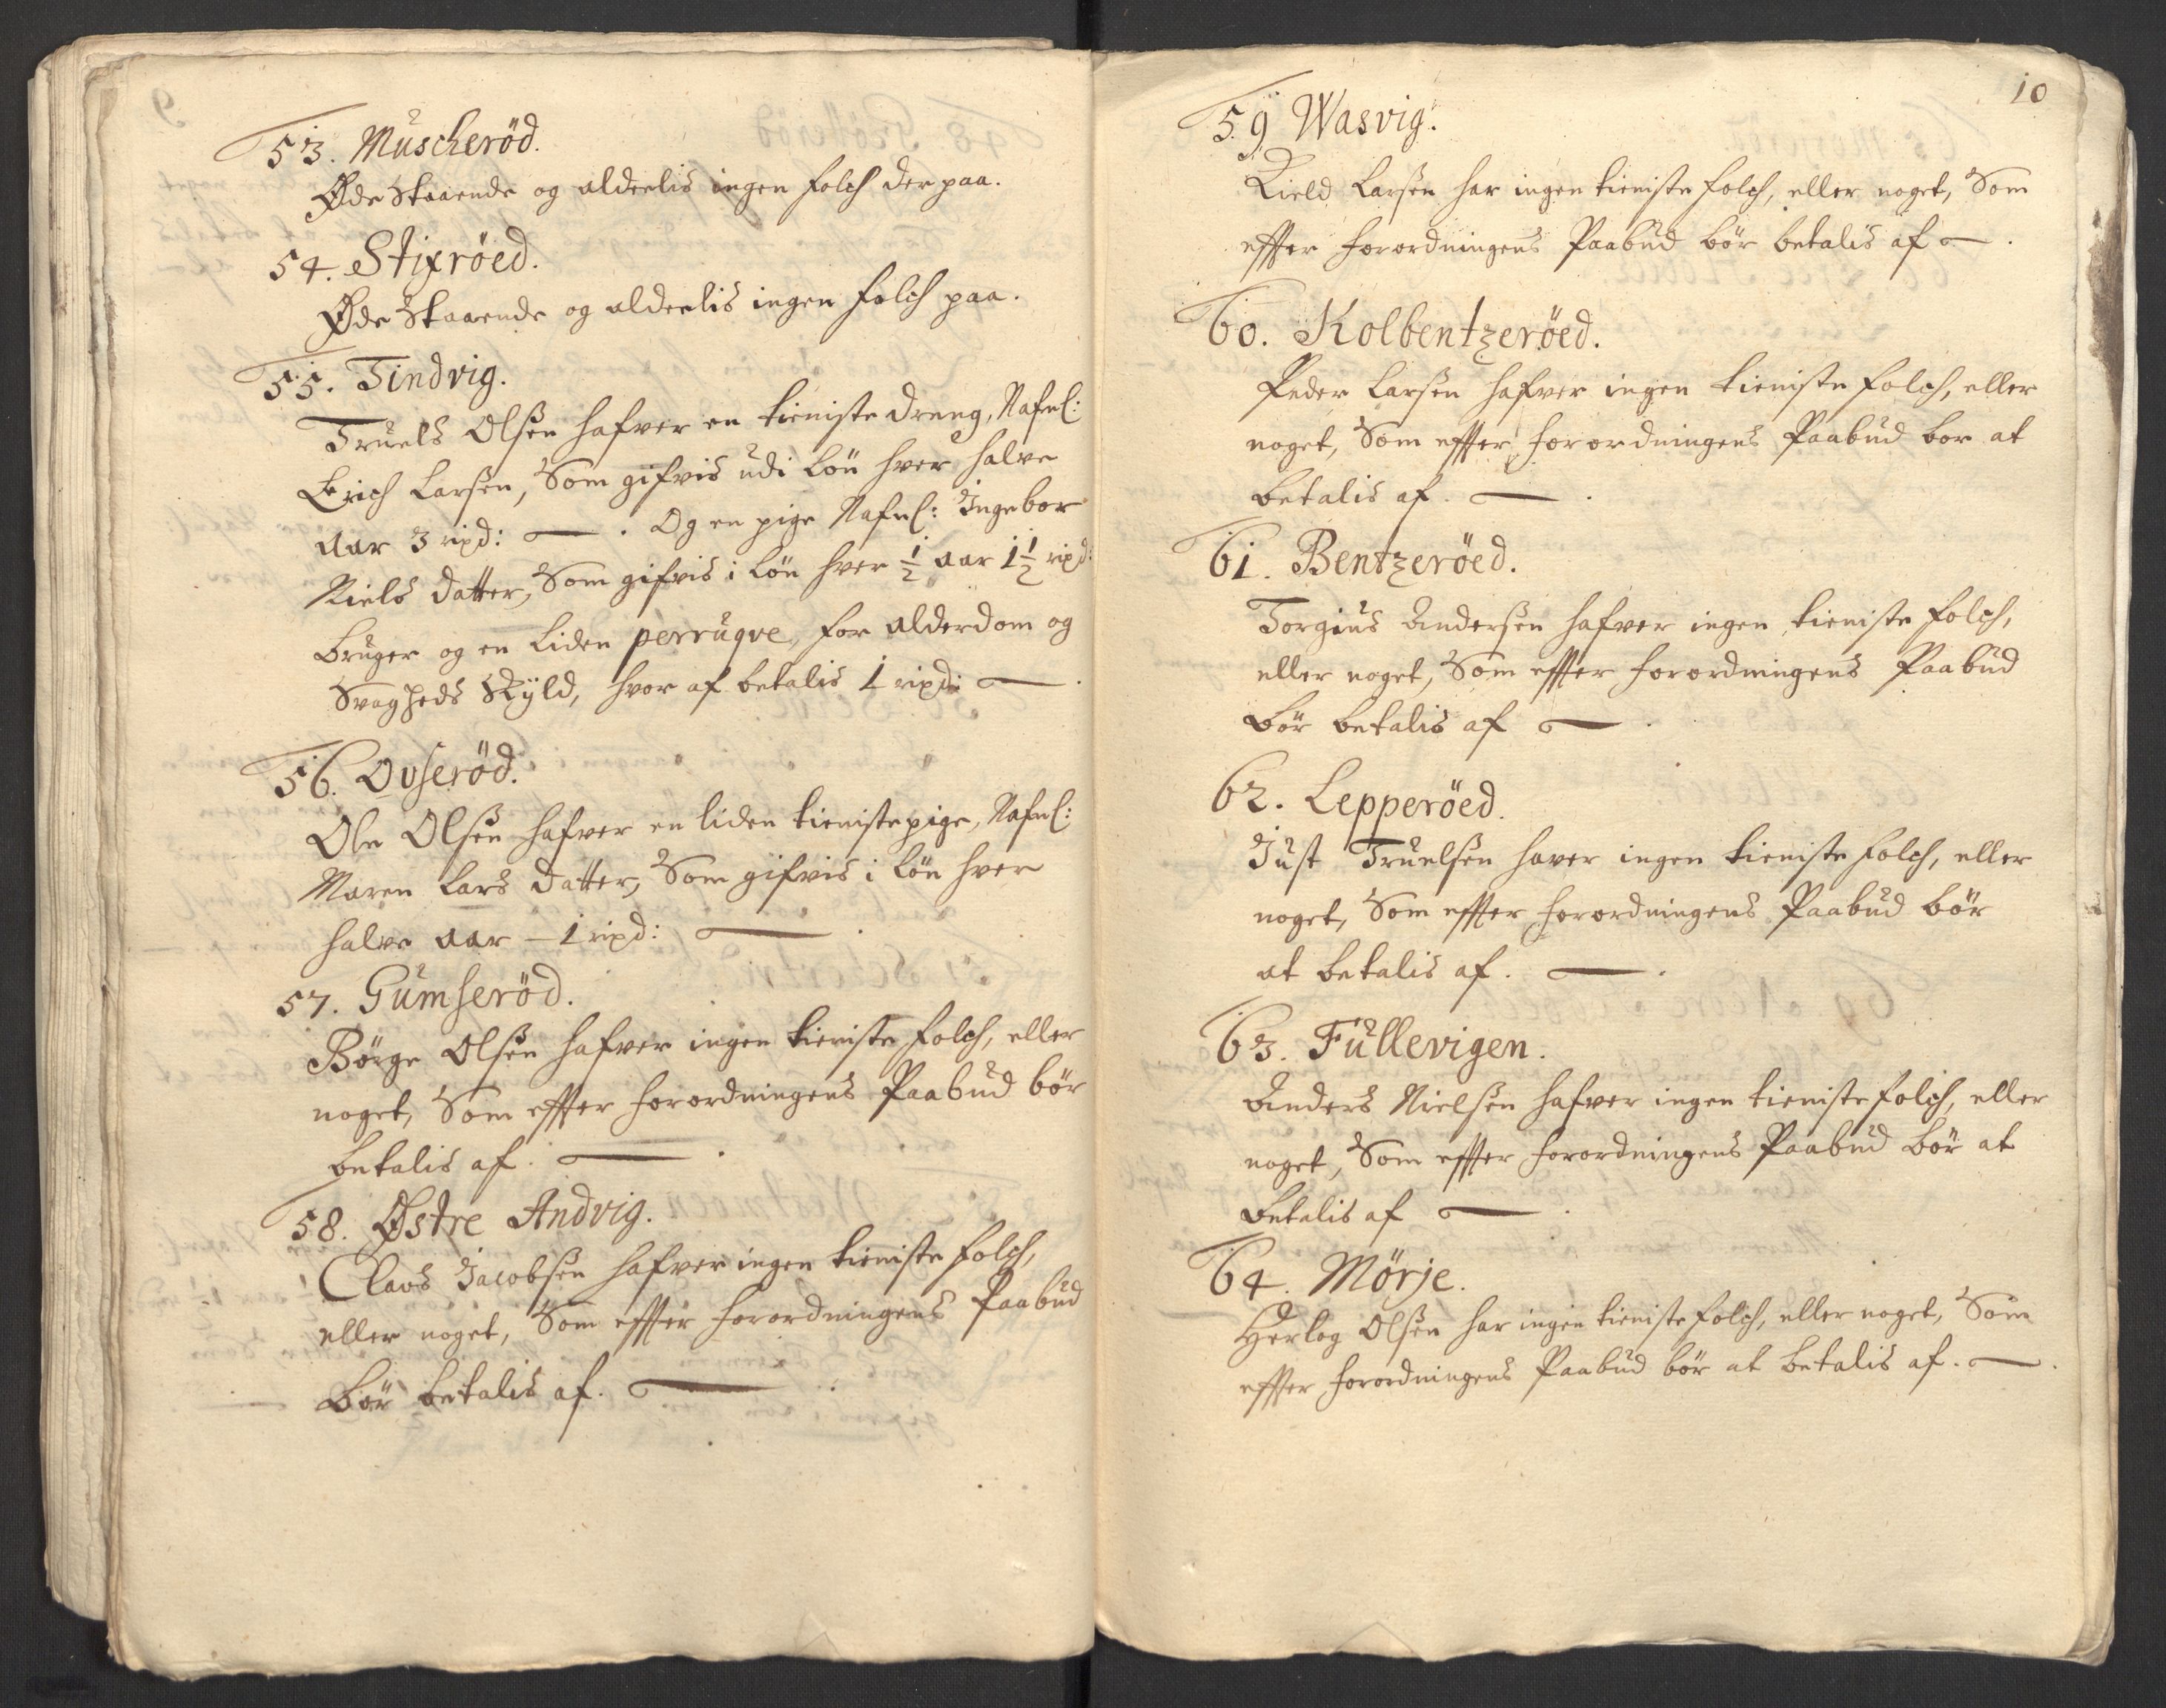 53. Muscheröd.
Øde Staaende og alderlis ingen folch der paa.
54. Stixröed.
Øde Staaende og alderlis ingen folch paa.
55. Tindvig.
Truels Olsen hafver en tieniste dreng, Nafnl:
Erich Larsen, Som gifvis udi Lön hver halve
aar 3 rixd: — . Og en pige Nafnl: Ingebor
Niels datter, Som gifvis i Lön hver ½ aar 1½ rixd:
bruger og en liden perruqve, for alderdom og
Svagheds Skyld, hvor af betalis 1 rixd: — .
56. Ovserød.
Ole Olsen hafver en liden tienistepige, Nafnl:
Maren Lars datter, Som gifvis i Lön hver
halve aar – 1 rixd: — .
57. Gumseröd.
Börge Olsen hafver ingen tieniste folch, eller
noget, Som effter forordningens Paabud bör
betalis af. — .
58. Østre Andvig.
Claus Jacobsen hafver ingen tieniste folch,
eller noget, Som effter forordningens Paabud
bör betalis af. — .
10
59 Wasvig.
Kield Larsen har ingen tieniste folch, eller noget, Som
effter forordningens Paabud bör betalis af — .
60. Kolbentzeröed.
Peder Larsen hafver ingen tieniste folch, eller
noget, Som effter forordningens Paabud bor at
betalis af. — .
61. Bentzeröed.
Torgius Andersen hafver ingen tieniste folch,
eller noget, Som effter forordningens Paabud
bör betalis af — .
62. Lepperöed.
Just Truelsen haver ingen tieniste folch, eller
noget, Som effter forordningens Paabud bör
at betalis af. — .
63. Fullevigen.
Anders Nielsen hafver ingen tieniste folch, eller
noget, Som effter forordningens Paabud bör at
betalis af — .
64. Mörje.
Herlog Olsen har ingen tieniste folch, eller noget, Som
effter forordningens Paabud bör at betalis af. — .